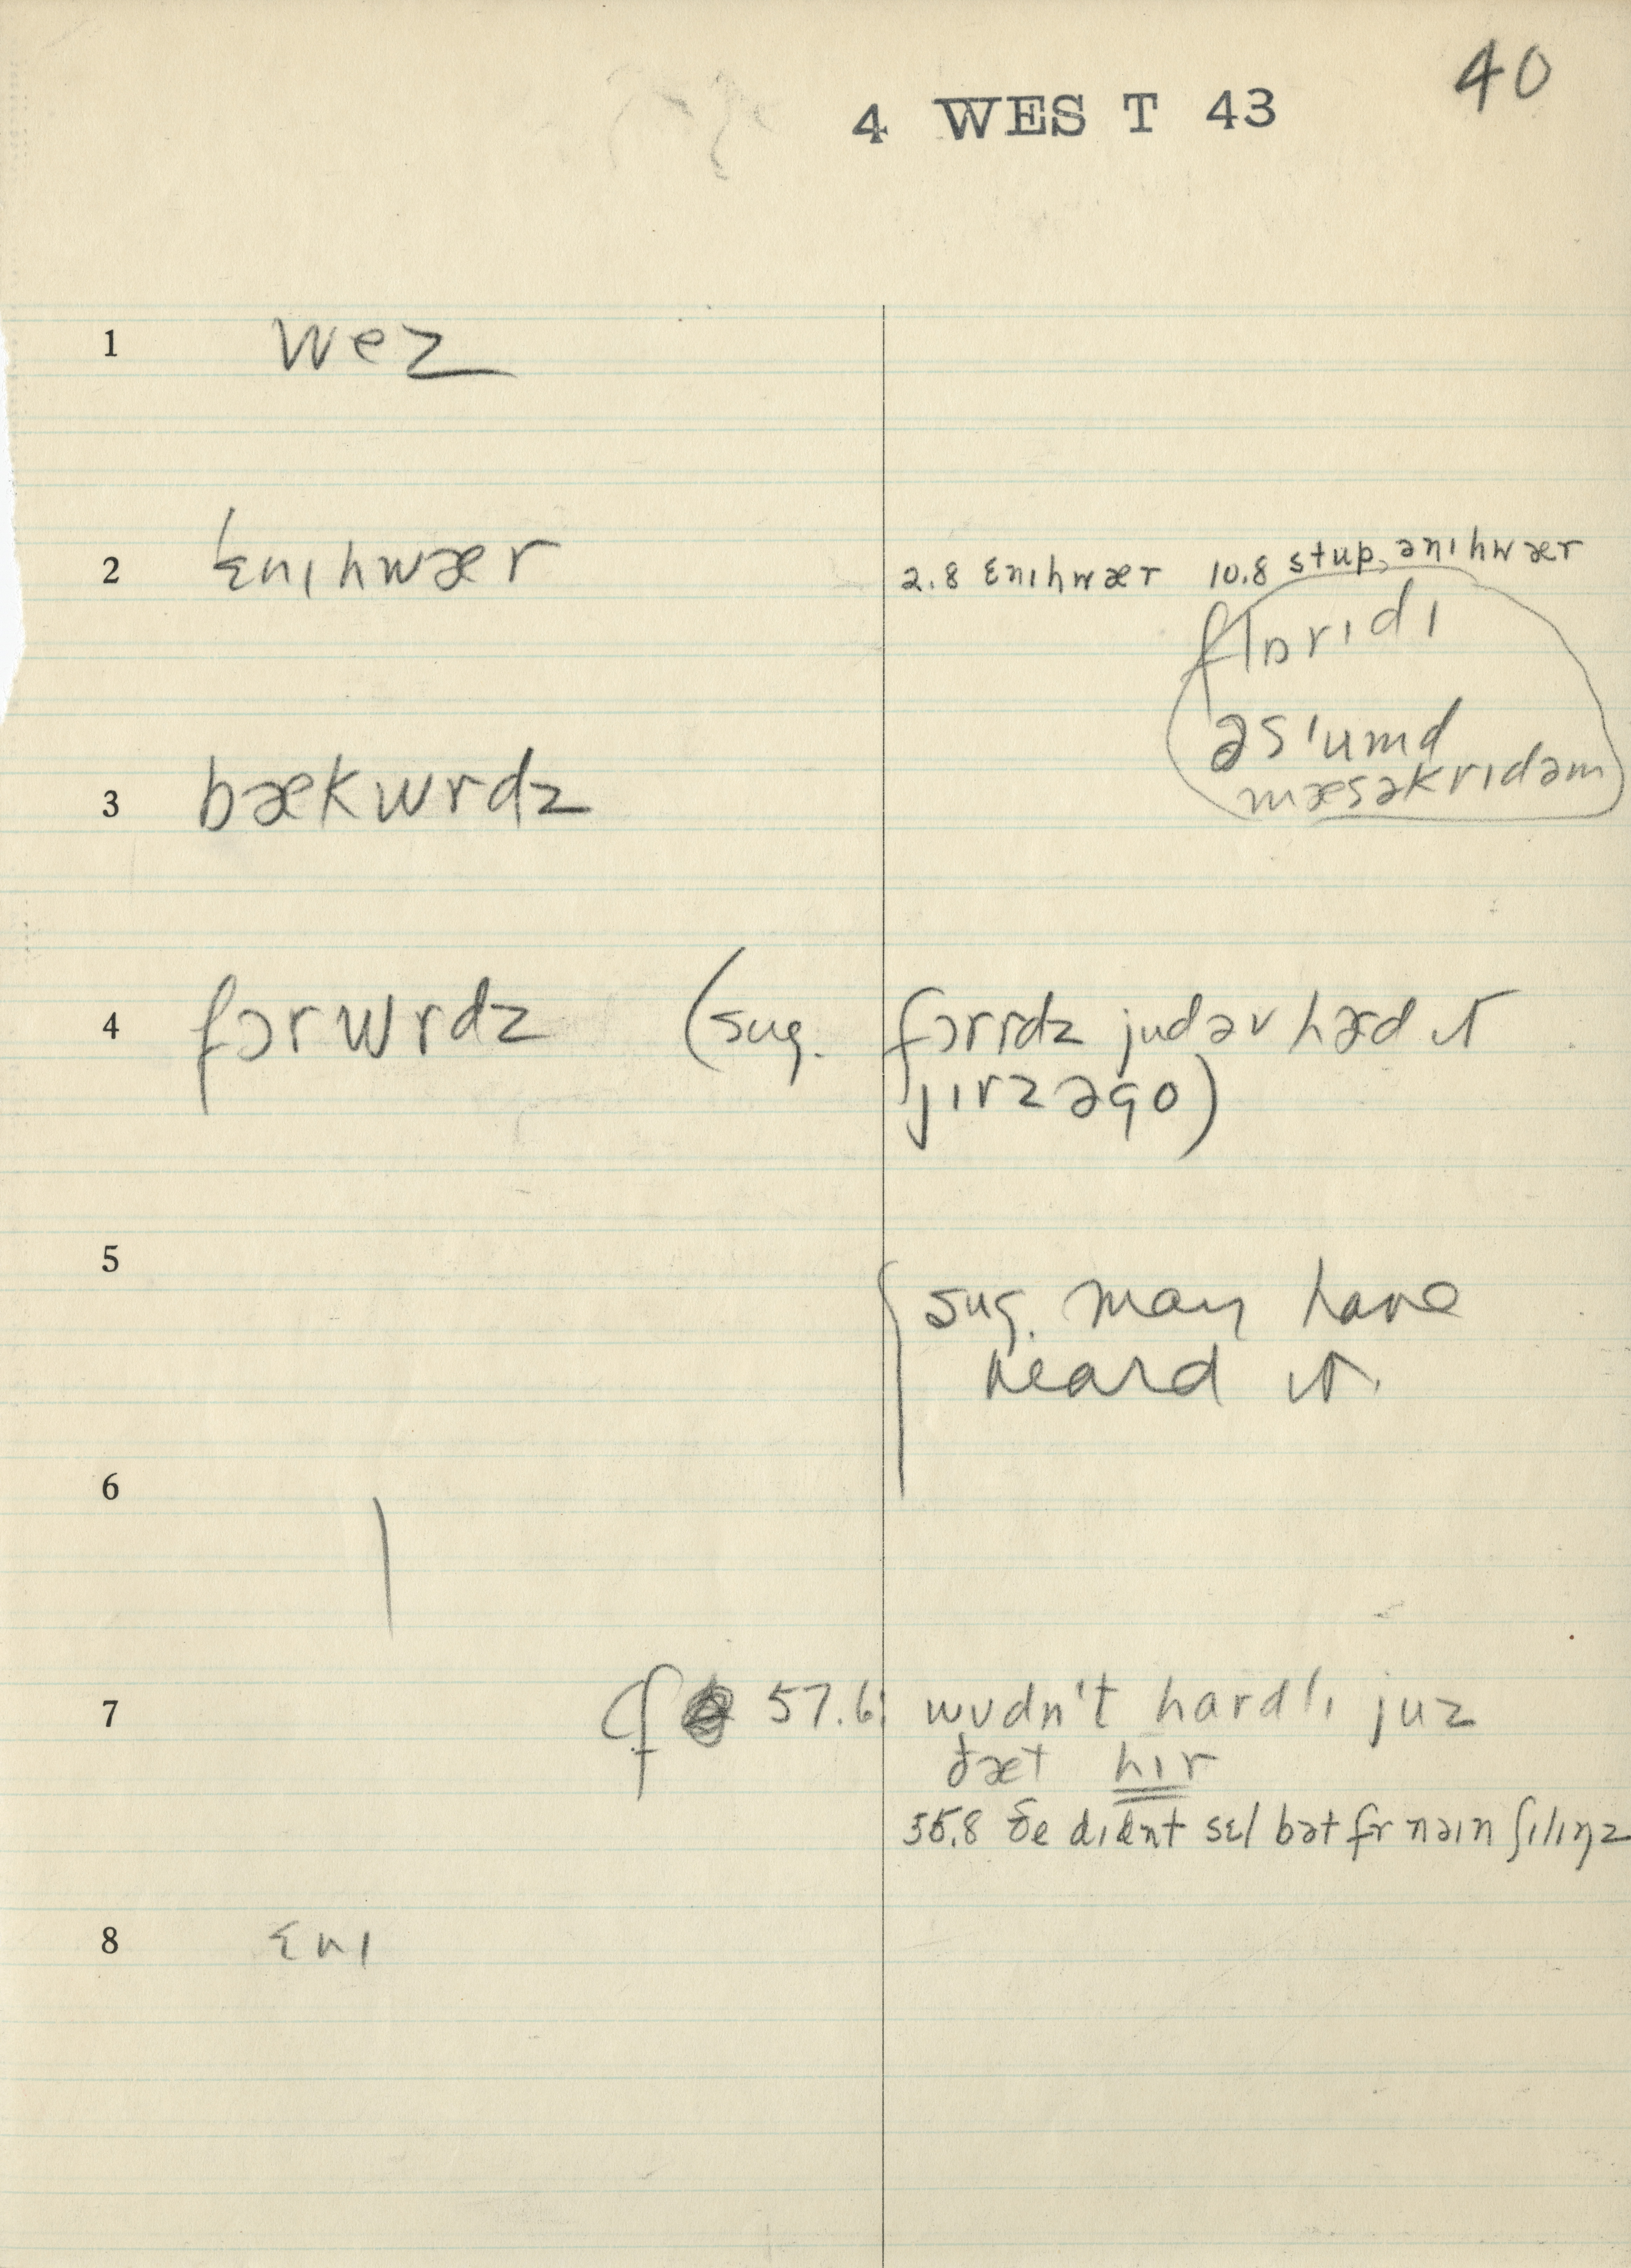 40
4 WEST 43
1 wez
2 ɛnɪhwær 2.8 ɛnɪhwær 10.8 stup, ənɪhwær
flɒrɪdɪ
əs'umd
mæsəkrɪdəm
3 bækwrdz
4 fɔrwrdz (sug. fɔrrdz judəv hæd it
jɪrz əgo)
5 sug. may have
heard it.
6
7 cf 57.6: wʊdn't hardlɪ juz
ðæt hɪr
55.8 ðe dɪdnt sɛl bət fr nəɪn ʃɪlɪŋz
8 ɛnɪ